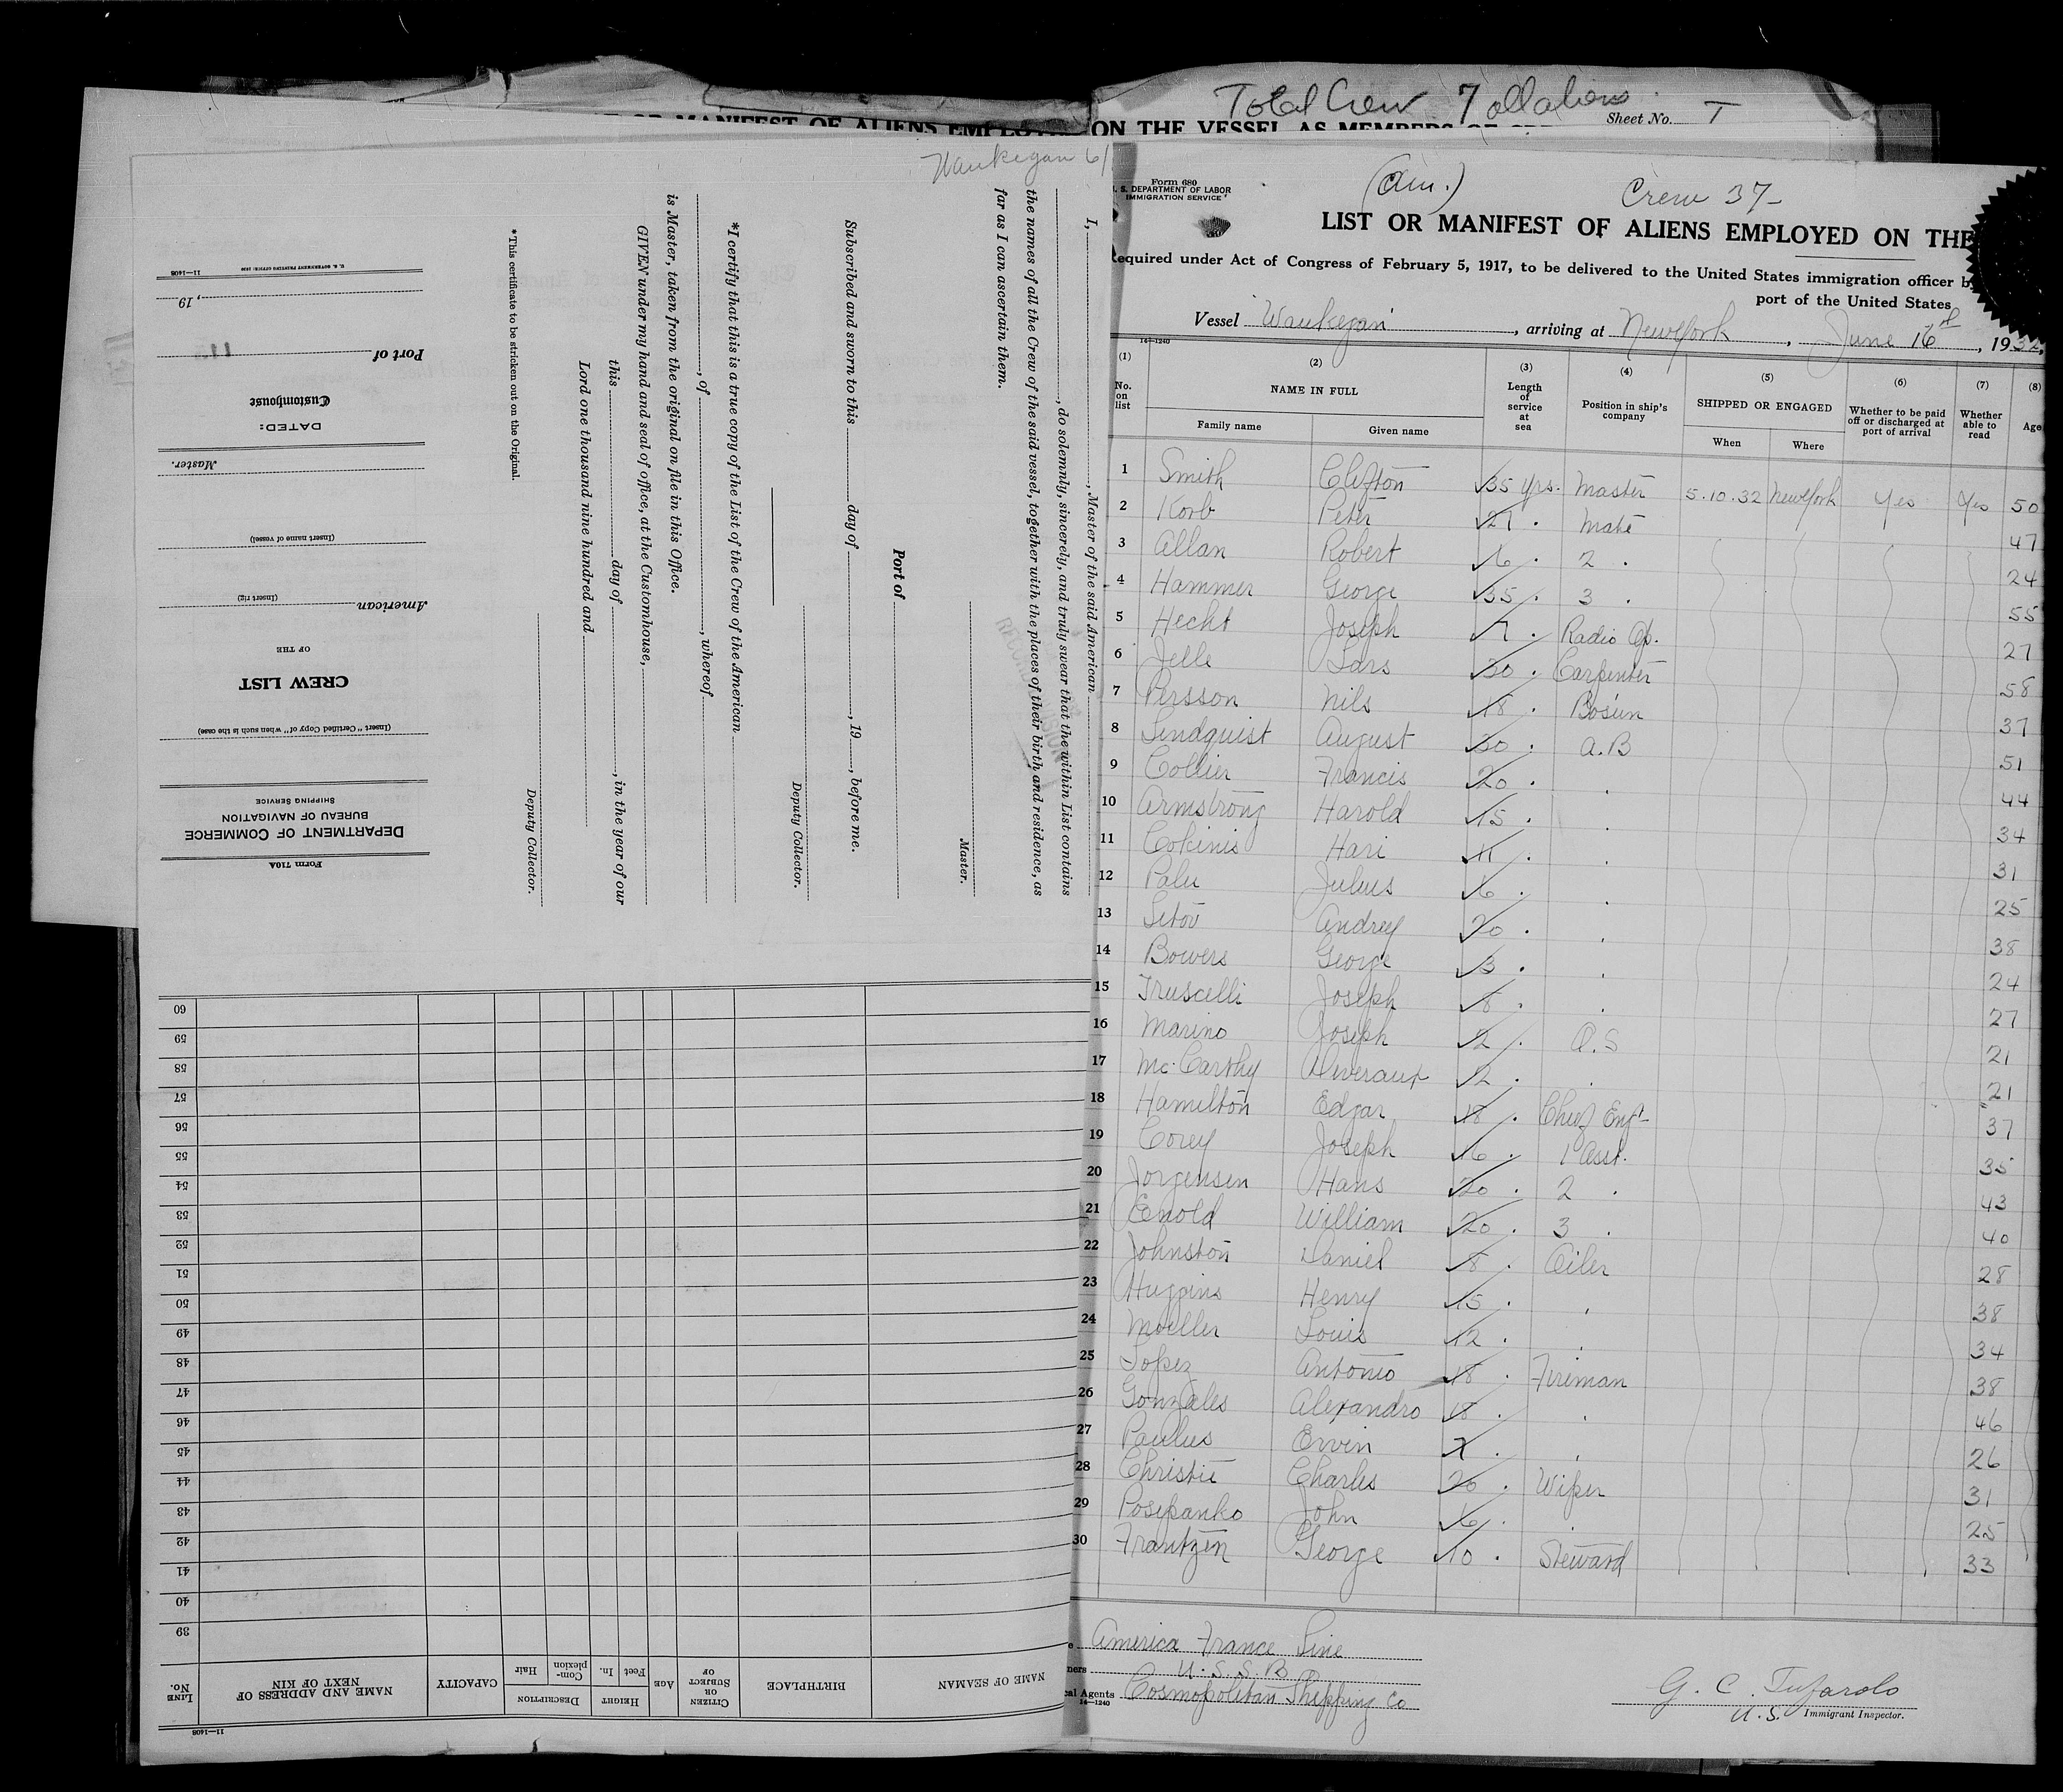 Total Crew 7 all aliens
Sheet No. T
MANIFEST OF ALIENS EMPLOYED ON THE VESSEL AS MEMBERS OF
Waukegan 6/
I, , Master of the said American
, do solemnly, sincerely, and truly swear that the within List contains
the names of all the Crew of the said vessel, together with the places of their birth and residence, as
far as I can ascertain them.
Master.
Port of
Subscribed and sworn to this day of , 19 , before me.
Deputy Collector.
*I certify that this is a true copy of the List of the Crew of the American
, of , whereof
is Master, taken from the original on file in this Office.
GIVEN under my hand and seal of office, at the Customhouse,
this day of , in the year of our
Lord one thousand nine hundred and
Deputy Collector.
*This certificate to be stricken out on the Original.
Form 710A
DEPARTMENT OF COMMERCE
BUREAU OF NAVIGATION
SHIPPING SERVICE
(Insert "Certified Copy of" when such is the case)
CREW LIST
OF THE
American
(Insert rig)
(Insert name of vessel)
Master.
DATED:
Customhouse
Port of
, 19
11—1408 U. S. GOVERNMENT PRINTING OFFICE: 1930
11—1408
LINE No. NAME AND ADDRESS OF NEXT OF KIN CAPACITY DESCRIPTION Hair Complexion HEIGHT In. Feet AGE CITIZEN OR SUBJECT OF BIRTHPLACE NAME OF SEAMAN
39
40
41
42
43
44
45
46
47
48
49
50
51
52
53
54
55
56
57
58
59
60
Form 680
U. S. DEPARTMENT OF LABOR
IMMIGRATION SERVICE
(Am.)
Crew 37-
LIST OR MANIFEST OF ALIENS EMPLOYED ON THE
Required under Act of Congress of February 5, 1917, to be delivered to the United States immigration officer by
port of the United States
Vessel Waukegan , arriving at New York , June 16 , 1932,
14—1240
(1) (2) (3) (4) (5) (6) (7) (8)
No. on list NAME IN FULL Length of service at sea Position in ship's company SHIPPED OR ENGAGED Whether to be paid off or discharged at port of arrival Whether able to read Age
Family name Given name When Where
1 Smith Clifton 35 yrs. Master 5.10.32 New York Yes Yes 50
2 Korb Peter 27 . Mate 47
3 Allan Robert 6 . 2 . 24
4 Hammer George 35 . 3 . 55
5 Hecht Joseph 7 . Radio Op. 27
6 Jelle Lars 30 . Carpenter 58
7 Persson Nils 18 . Bosun 37
8 Lindquist August 30 . A.B 51
9 Collier Francis 20 . . 44
10 Armstrong Harold 15 . . 34
11 Cokinis Hari 11 . . 31
12 Palu Julius 6 . . 25
13 Letov Andrey 20 . . 38
14 Bowers George 3 . . 24
15 Truscelli Joseph 8 . . 27
16 Marino Joseph 2 . O.S 21
17 Mc.Carthy Deveraux 2 . . 21
18 Hamilton Edgar 18 . Chief Eng. 37
19 Corey Joseph 16 . 1 Asst. 35
20 Jorgensen Hans 20 . 2 . 43
21 Enold William 20 . 3 . 40
22 Johnston Daniel 8 . Oiler 28
23 Huggins Henry 15 . . 38
24 Moeller Louis 12 . . 34
25 Lopez Antonio 18 . Fireman 38
26 Gonzales Alexandro 18 . . 46
27 Paulus Ervin . . 26
28 Christie Charles 20 . Wiper 31
29 Posepanko John 6 . . 25
30 Frantzen George 10 . Steward 33
America France Line
U.S.S.B
Cosmopolitan Shipping Co
14—1240
G. C. Tufarolo
U.S. Immigrant Inspector.